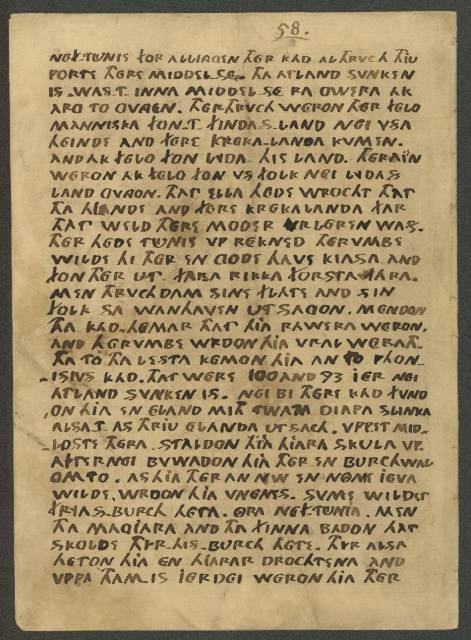 58.
NEF.TUNIS FOR ALLINGEN THER KAD AL THRUCH THIU
PORTE THERE MIDDEL.SE. THA ATLAND SVNKEN
IS. WAS.T INNA MIDDEL SE RA OWERA AK
ARG TO GVNGEN. THERTHRUCH WERON THER FELO
MANNISKA FON.T FINDAS.LAND NEI VSA
HEINDE AND FERE KREKA.LANDA KVMEN.
AND AK FELO FON LYDA.HIS LAND. THERAJN
WERON AK FELO FON VS FOLK NEI LYDAS
LAND GVNGON. THAT ELLA HEDE WROCHT THAT
THA HEINDE AND FERE KREKALANDA FAR
THAT WELD THERE MODER VRLEREN WAS.
THER HEDE TUNIS VP REKNED THERVMBE
WILDE HI THER EN GODE HAVE KIASA AND
FON THER UT. FARA RIKKA FORSTA FARA.
MEN THRUCHDAM SINE FLATE AND SIN
FOLK SA WANHAVEN UTSAGON. MENDON
THA KAD.HEMAR THAT HIA RAWERA WERON.
AND THERVMBE WRDON HIA VRAL WERATH.
THA TO THA LESTA KEMON HIA AN TO PHON
.ISIVS KAD. THAT WERE 100 AND 93 IER NEI
ATLAND SVNKEN IS. NEI BI THERE KAD FVND
.ON HIA EN ELAND MITH TWAM DIAPA SLINKA
ALSA.T AS THRIU ELANDA UTSACH. VPPET MID.
LOSTE THERA. STALDON HIA HIARA SKULA VP.
AFTERNEI BVWADON HIA THER EN BURCHWAL
OM TO. AS HIA THER AN NW EN NOME IEVA
WILDE. WRDON HIA VNENES. SVME WILDET
FRYAS.BURCH HETA. ORA NEF.TUNIA. MEN
THA MAGIARA AND THA FINNA BADON THAT
SKOLDE THYR.HIS.BURCH HETE. THYR ALSA
HETON HIA EN HIARAR DROCHTENA AND
VPPA THAM.IS IERDEI WERON HIA THER